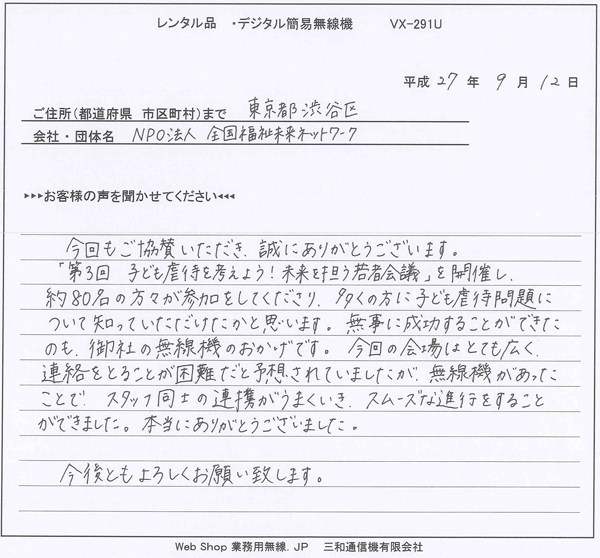 レンタル品 ・デジタル簡易無線機 VX-291U
平成 27 年 9 月 12 日
ご住所(都道府県 市区町村)まで 東京都渋谷区
会社・団体名 NPO法人 全国福祉未来ネットワーク
▸▸▸お客様の声を聞かせてください◂◂◂
今回もご協賛いただき、誠にありがとうございます。
「第3回 子ども虐待を考えよう!未来を担う若者会議」を開催し、
約80名の方々が参加をしてくださり、多くの方に子ども虐待問題に
ついて知っていただけたかと思います。無事に成功することができた
のも、御社の無線機のおかげです。今回の会場はとても広く、
連絡をとることが困難だと予想されていましたが、無線機があった
ことで、スタッフ同士の連携がうまくいき、スムーズな進行をすること
ができました。本当にありがとうございました。
今後ともよろしくお願い致します。
Web Shop 業務用無線.JP 三和通信機有限会社